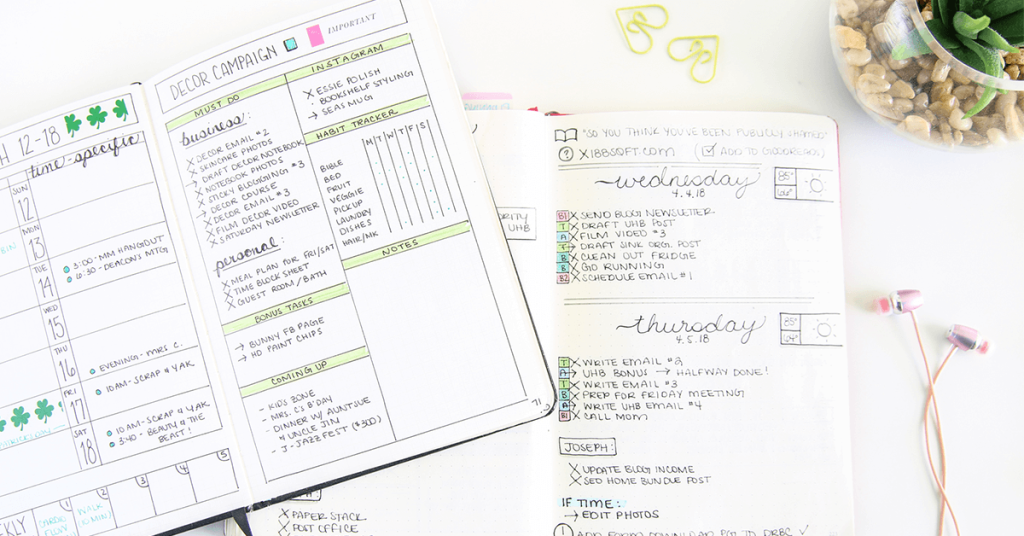 H 12-18
time-specific
SUN
12
MON
13
TUE
14
3:00 - MM HANGOUT
6:30 - DEACONS MTG
WED
15
THU
16
EVENING - MRS C.
FRI
17
10AM - SCRAP & YAK
SAT
18
10AM - SCRAP & YAK
3:40 - BEAUTY & THE
BEAST!
1
2
3
4
5
WALK
(10 MIN)
DECOR CAMPAIGN
IMPORTANT
MUST DO
business:
X DECOR EMAIL #2
X SKINCARE PHOTOS
→ DRAFT DECOR NOTEBOOK
X NOTEBOOK PHOTOS
X STICKY BLOGGING #3
→ DECOR COURSE
X DECOR EMAIL #3
X FILM DECOR VIDEO
X SATURDAY NEWSLETTER
personal:
X MEAL PLAN FOR FRI/SAT
X TIME BLOCK SHEET
X GUEST ROOM / BATH
BONUS TASKS
→ BUNNY FB PAGE
→ HD PAINT CHIPS
COMING UP
- KIDS ZONE
- MRS. C'S B'DAY
- DINNER W/ AUNT SUE
& UNCLE JIM
- J - JAZZFEST ($300)
INSTAGRAM
X ESSIE POLISH
BOOKSHELF STYLING
→ SEAS MUG
HABIT TRACKER
M T W T F S
BIBLE
BED
FRUIT
VEGGIE
PICKUP
LAUNDRY
DISHES
HAIR/MK
NOTES
71
UHB
X PAPER STACK
X POST OFFICE
"SO YOU THINK YOU'VE BEEN PUBLICLY SHAMED"
? XIBBSOFT.COM (ADD TO GOODREADS)
wednesday
4.4.18
85°
B1 X SEND BLOG NEWSLETTER
T X DRAFT UHB POST
A X FILM VIDEO #3
T → DRAFT SINK ORG. POST
B X CLEAN OUT FRIDGE
B X GO RUNNING
B2 X SCHEDULE EMAIL #1
thursday
4.5.18
85°
64°
T X WRITE EMAIL #2
A → UHB BONUS → HALFWAY DONE!
T X WRITE EMAIL #3
B X PREP FOR FRIDAY MEETING
A → WRITE UHB EMAIL #4
B1 X CALL MOM
JOSEPH:
X UPDATE BLOG INCOME
X SEO HOME BUNDLE POST
IF TIME:
→ EDIT PHOTOS